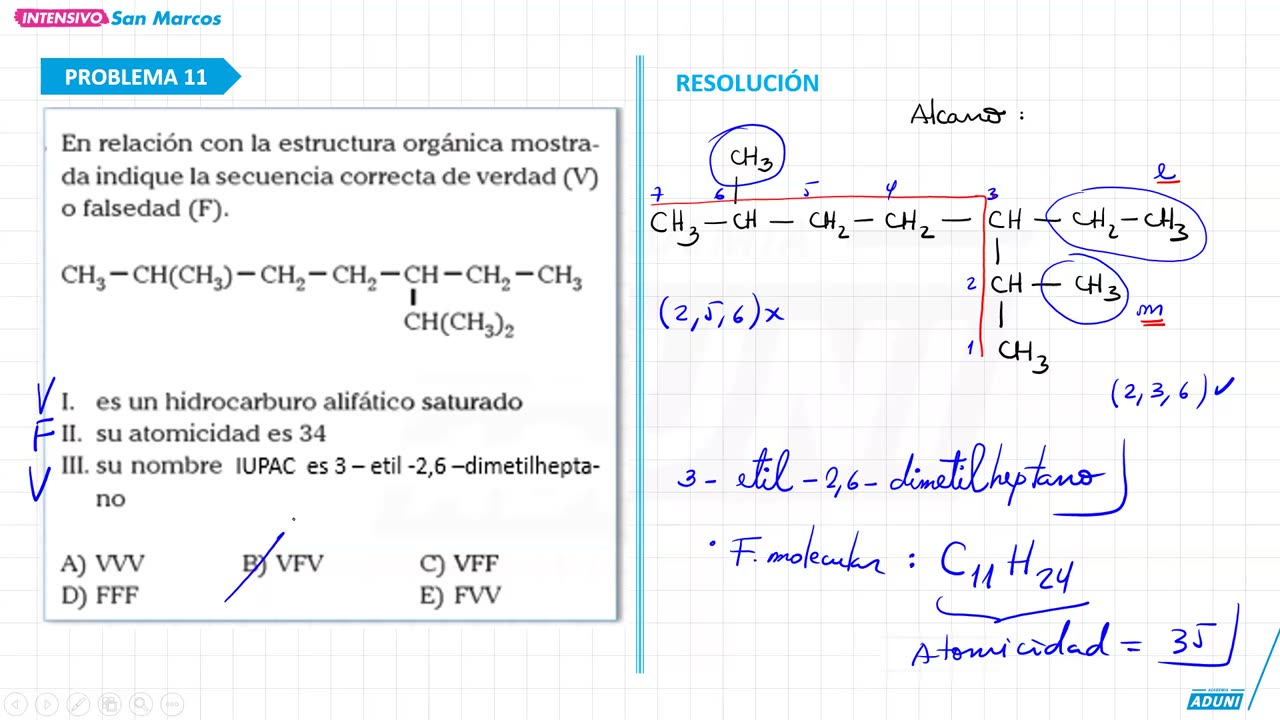 INTENSIVO San Marcos
PROBLEMA 11
En relación con la estructura orgánica mostra-
da indique la secuencia correcta de verdad (V)
o falsedad (F).
CH₃ — CH(CH₃) — CH₂ — CH₂ — CH — CH₂ — CH₃
CH(CH₃)₂
V I. es un hidrocarburo alifático saturado
F II. su atomicidad es 34
V III. su nombre IUPAC es 3 – etil -2,6 –dimetilhepta-
no
A) VVV B) VFV C) VFF
D) FFF E) FVV
RESOLUCIÓN
Alcano :
CH₃
e
7 6 5 4 3
CH₃ — CH — CH₂ — CH₂ — CH — CH₂ — CH₃
2 CH — CH₃
m
(2, 5, 6) x
1 CH₃
(2, 3, 6) ✓
3 - etil - 2,6 - dimetilheptano
• F. molecular : C₁₁ H₂₄
Atomicidad = 35
ACADEMIA
ADUNI